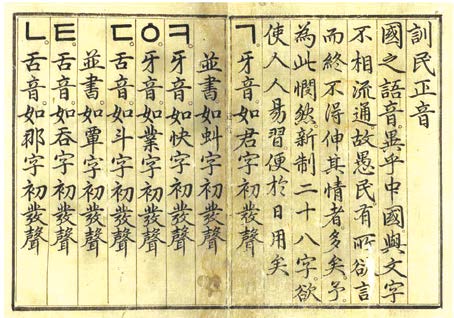 訓民正音
國之語音。異乎中國。與文字
不相流通。故愚民有所欲言
而終不得伸其情者多矣。予
為此憫然。新制二十八字。欲
使人人易習便於日用矣
ㄱ。牙音。如君字初發聲
並書。如虯字初發聲
ㅋ。牙音。如快字初發聲
ㆁ。牙音。如業字初發聲
ㄷ。舌音。如斗字初發聲
並書。如覃字初發聲
ㅌ。舌音。如呑字初發聲
ㄴ。舌音。如那字初發聲